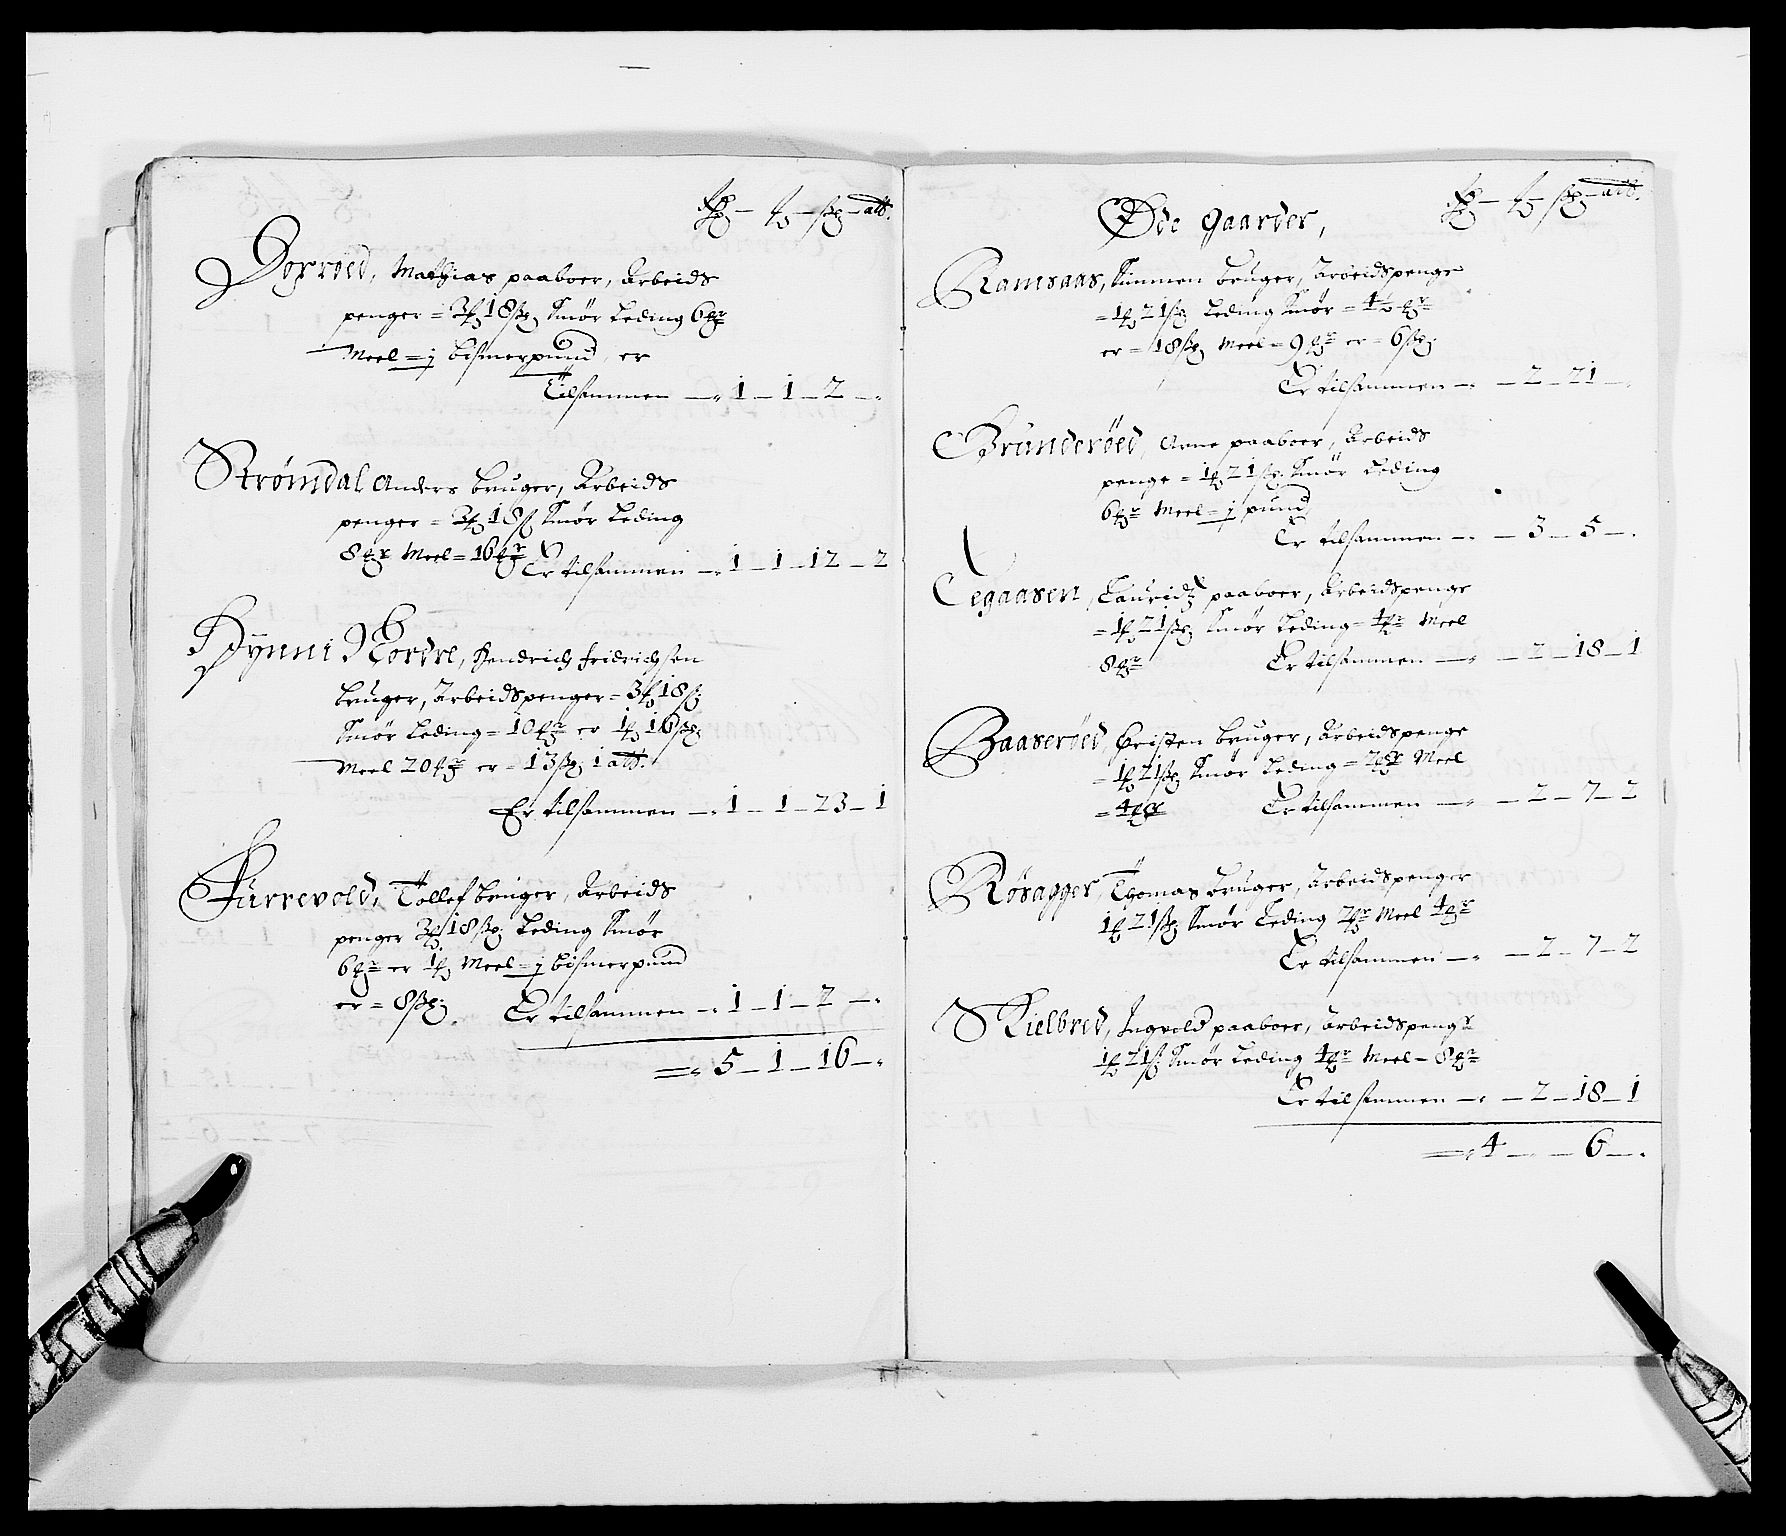 Rdr – ℔ – sk – alb.
Dorröed, Mathias paaboer, Arbeids
penger = 3 ℔ 18 sk, Smör Leding 6 mkr
Meel = j bismerpund, er
Tilsammen – 1 – 1 – 2 –
Strömdal Anders bruger, Arbeids
penger = 3 ℔ 18 s Smör Leding
8 mkr Meel = 16 mkr
Er tilsammen – 1 – 1 – 12 – 2
Nordre, Hendrich fridrichsen
bruger, Arbeidspenger = 3 ℔ 18 s
Smör Leding = 10 mkr er 1 ℔ 16 sk
Meel 20 mkr er = 13 sk 1 alb.
Er tilsammen – 1 – 1 – 23 – 1
Furrevold, Tollef bruger, Arbeids
penger 3 ℔ 18 sk Leding Smör
6 mkr er 1 ℔ Meel = j bismerpund
er = 8 sk
Er tilsammen – 1 – 1 – 2 –
= 5 – 1 – 16 –
Rdr – ℔ – sk – alb.
Öde gaarder,
Ramsaas, Simmen bruger, Arbeidspenge
= 1 ℔ 21 sk Leding Smör = 4½ mkr
er = 18 sk Meel = 9 mkr er = 6 sk
Er tilsammen – – 2 – 21 –
Brunderöed, Anne paaboer, Arbeids
penge = 1 ℔ 21 sk Smör Leding
6 mkr Meel = j pund
Er tilsammen – – 3 – 5 –
Tegaasen, Lauridz paaboer, Arbeidspenge
= 1 ℔ 21 sk Smör Leding = 4 mkr Meel
8 mkr
Er tilsammen – – 2 – 18 – 1
Baaseröed, Cristen bruger, Arbeidspenge
= 1 ℔ 21 sk Smör Leding = 2 mkr Meel
= 4 mkr
Er tilsammen – – 2 – 7 – 2
Rösagger, Thomas bruger, Arbeidspenger
1 ℔ 21 sk Smör Leding 2 mkr Meel 4 mkr
Er tilsammen – – 2 – 7 – 2
Skielbred, Ingvold paaboer, Arbeidspengr
1 ℔ 21 s Smör Leding 4 mkr Meel – 8 mkr
Er tilsammen – – 2 – 18 – 1
= 4 – – 6 –